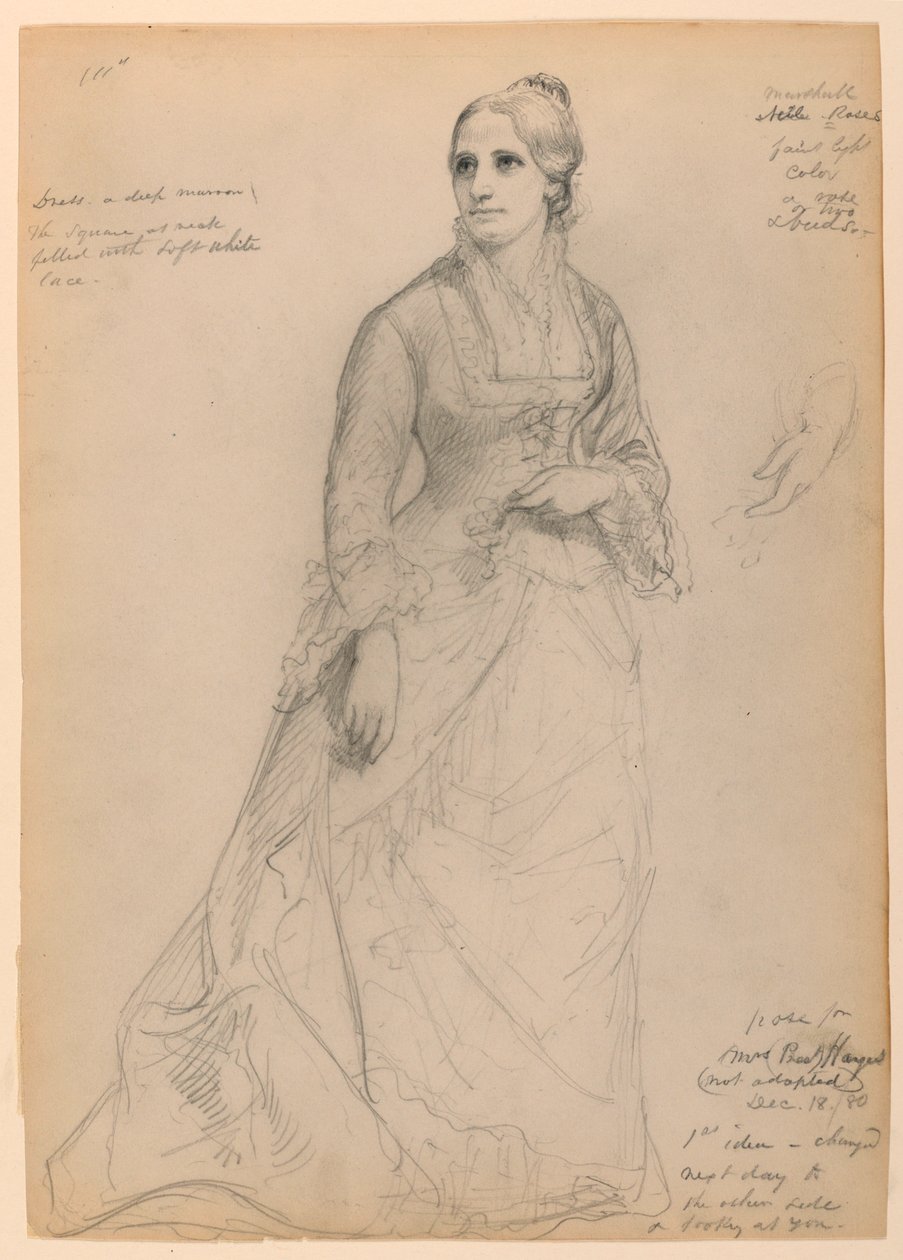 111"
Dress. a deep maroon
The square at neck
filled with soft white
lace.
Marshall
Neile Roses
faint light
color
a rose
or two
& buds.
pose for
Mrs (Prest) Hayes
(not adopted)
Dec. 18. /80
1st idea - changed
next day to
the other side
& looking at you.